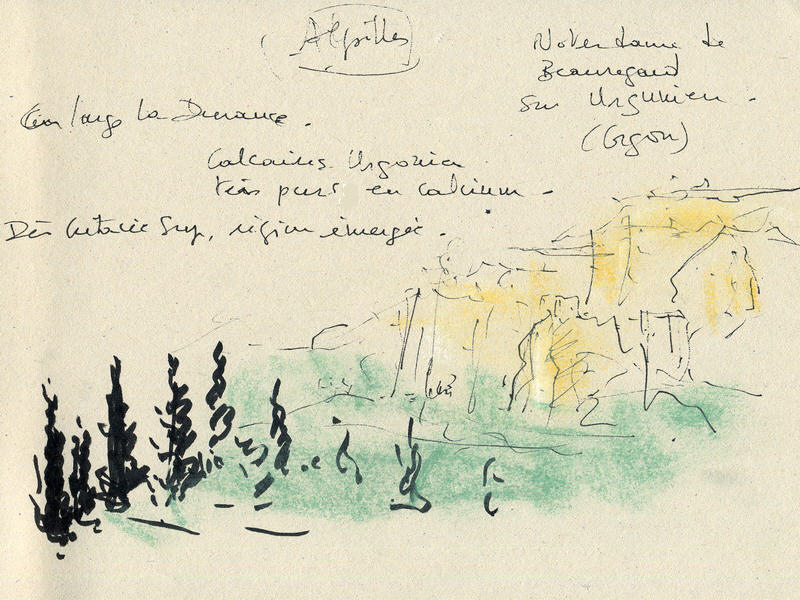 Alpilles
Notre dame de
Beauregard
sur Urgonien.
(Orgon)
longe la Durance.
Calcaires Urgonien
très purs en calcium.
Dès Crétacé Sup, région émergée.